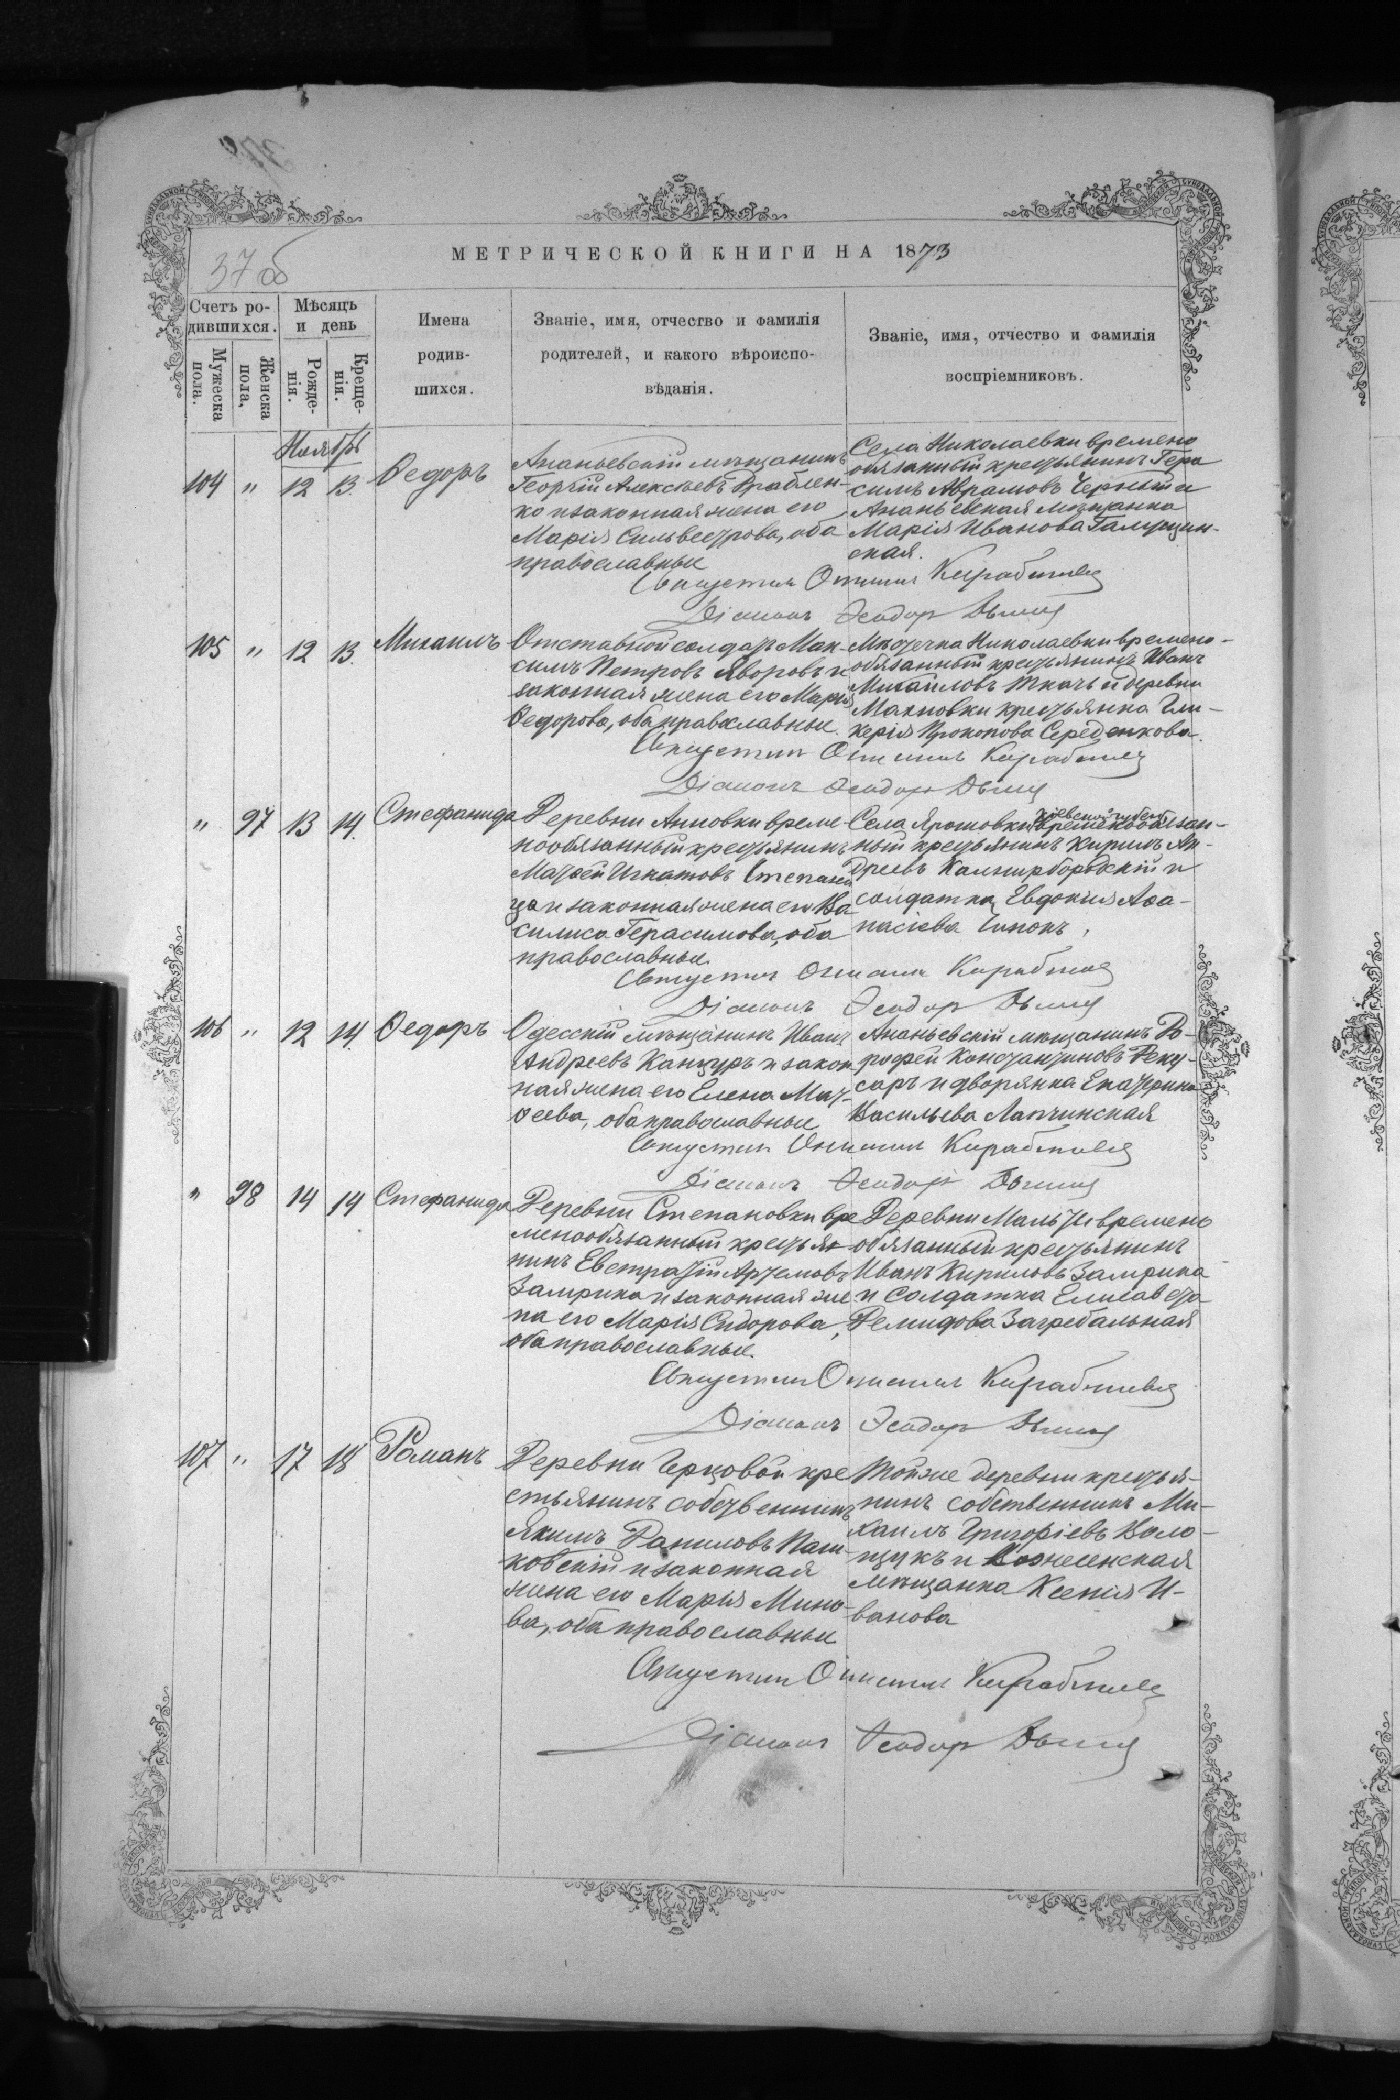 МЕТРИЧЕСКОЙ КНИГИ НА 1873
37 об
Счетъ ро-
дившихся.
Мужеска пола.
Женска пола.
Мѣсяцъ
и день
Рожде-
нія.
Креще-
нія.
Имена
родив-
шихся.
Званіе, имя, отчество и фамилія
родителей, и какого вѣроиспо-
вѣданія.
Званіе, имя, отчество и фамилія
воспріемниковъ.
Ноябрь
104 " 12 13. Ѳедоръ
Ананьевскій мѣщанинъ
Георгій Алексѣевъ
ко и законная жена его
Марія Сильвестрова, оба
православные
Села Николаевки времено
обязанный крестьянинъ Гера
симъ Аврамовъ Черный и
Ананьевская мѣщанка
Марія Иванова
ская.
Діаконъ Ѳеодоръ
105 " 12 13. Михаилъ
Отставной солдатъ Мак-
симъ Петровъ Яворовъ и
законная жена его Марія
Ѳедорова, оба православные.
Мѣстечка Николаевки времено-
обязанный крестьянинъ Иванъ
Михайловъ Ткачъ и деревни
Маяновки крестьянка Гли-
керія Прокопова Середенкова.
Діаконъ Ѳеодоръ
" 97 13 14. Стефанида
Деревни Анновки време-
нообязанный крестьянинъ
Матѳей Игнатовъ
и законная жена его Ва
силиса Герасимова, оба
православные.
Села Ярошовки Кіевской губерн временообязан-
ный крестьянинъ Кирилъ Ан-
дреевъ и
солдатка Евдокия Аѳа-
насіева
Діаконъ Ѳеодоръ
106 " 12 14. Ѳедоръ
Одесскій мѣщанинъ Иванъ
Андреевъ Канцуръ и закон
ная жена его Елена Мат-
ѳеева, оба православные
Ананьевскій мѣщанинъ До-
роѳей Константиновъ Реку-
саръ и дворянка Екатерина
Васильева Лапчинская
Діаконъ Ѳеодоръ
" 98 14 14 Стефанида
Деревни Степановки вре
менообязанный крестья
нинъ Евстратій Артемовъ
Замрика и законная же
на его Марія Сидорова,
оба православные.
Деревни Мальты времено
обязанный крестьянинъ
Иванъ Кириловъ Замрика
и солдатка Елисавета
Демидова Загребальная
Діаконъ Ѳеодоръ
107 " 17 18 Романъ
Деревни Черцовой кре
стьянинъ собственникъ
Якимъ Даниловъ Паш-
ковскій и законная
жена его Марья Мино-
ва, оба православные
Той же деревни крестья-
нинъ собственникъ Ми-
хаилъ Григоріевъ Воло-
щукъ и Вознесенская
мѣщанка Ксенія И-
ванова
Діаконъ Ѳеодоръ